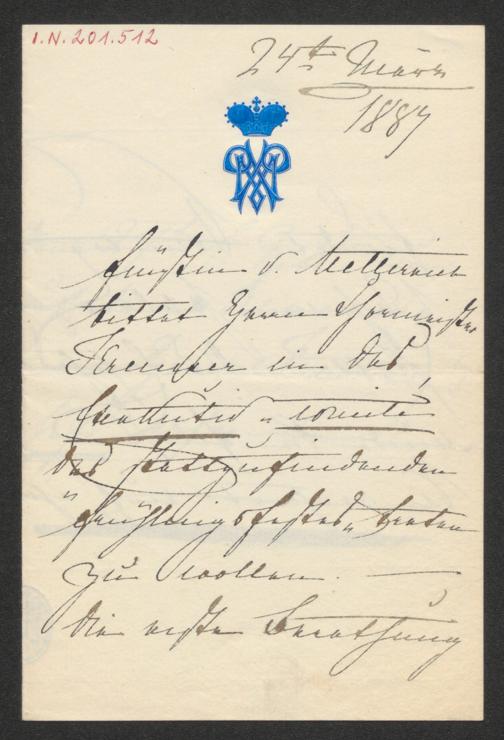 I.N. 201.512
24t März
1887
Fürstin v. Metternich
bittet Herrn Chormeister
Kremser in das
Exekutiv-Comité
des stattzufindenden
"Frühlingsfestes" treten
zu wollen. —
Die erste Berathung